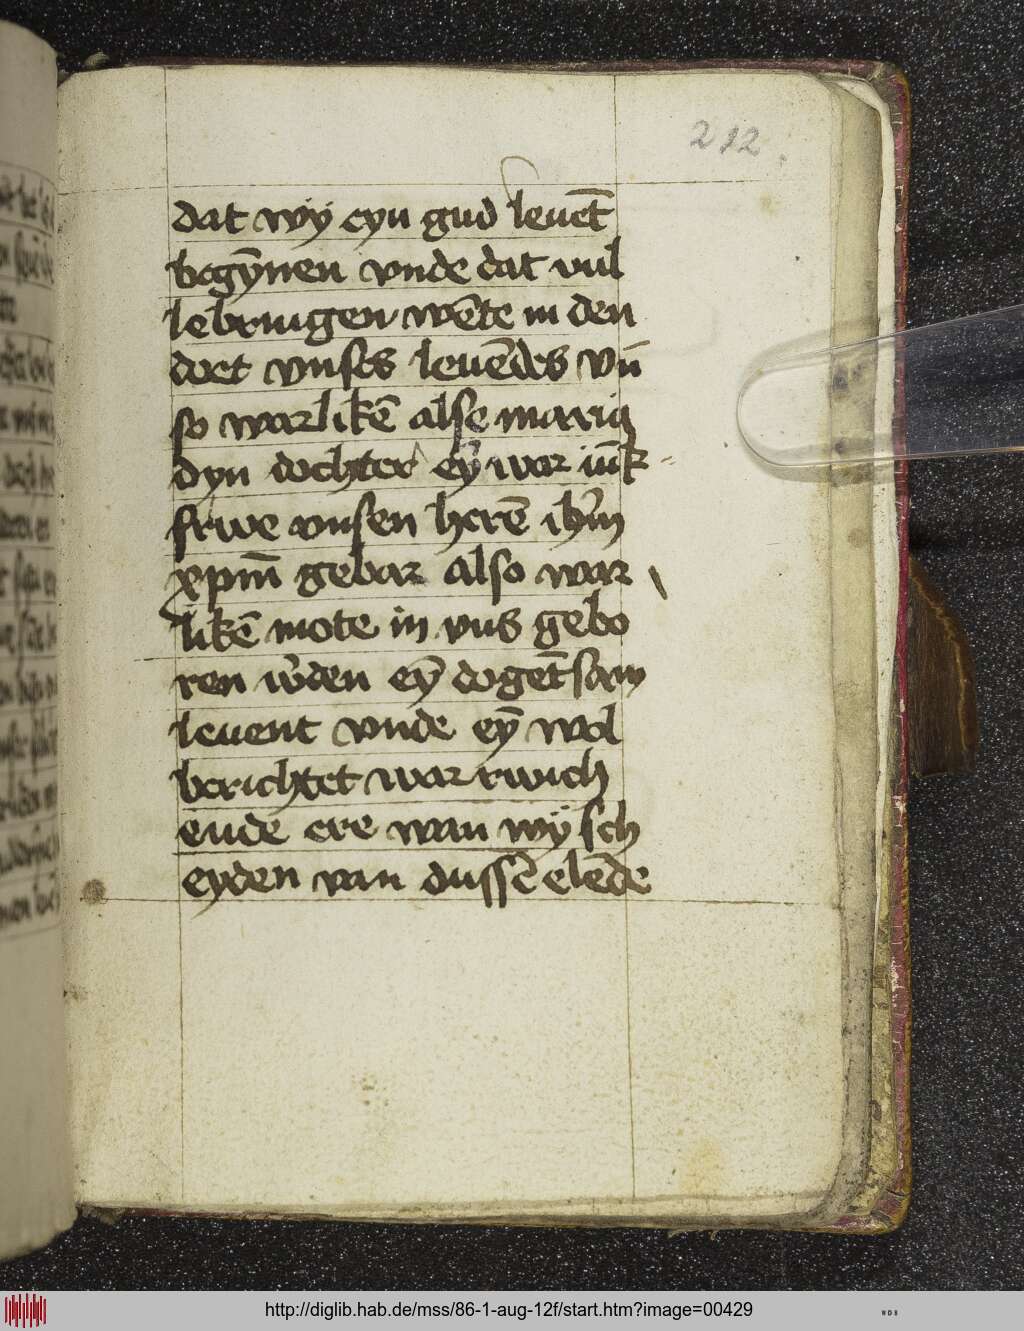 212
dat wÿ eyn gud leuēt
begȳnen vnde dat vul
lebringen wēte in den
doet vnses leuēdes vn̄
so warlikē alse maria
dyn dochter eȳ war iūk
frwe vnsen herē ihm̄
xpm̄ gebar also war
likē mote in vns gebo
ren w'den eȳ dogētsam
leuent vnde eȳ wol
berichtet war rwich
ende ere wan wÿ sch
eyden van dussē elēde
http://diglib.hab.de/mss/86-1-aug-12f/start.htm?image=00429